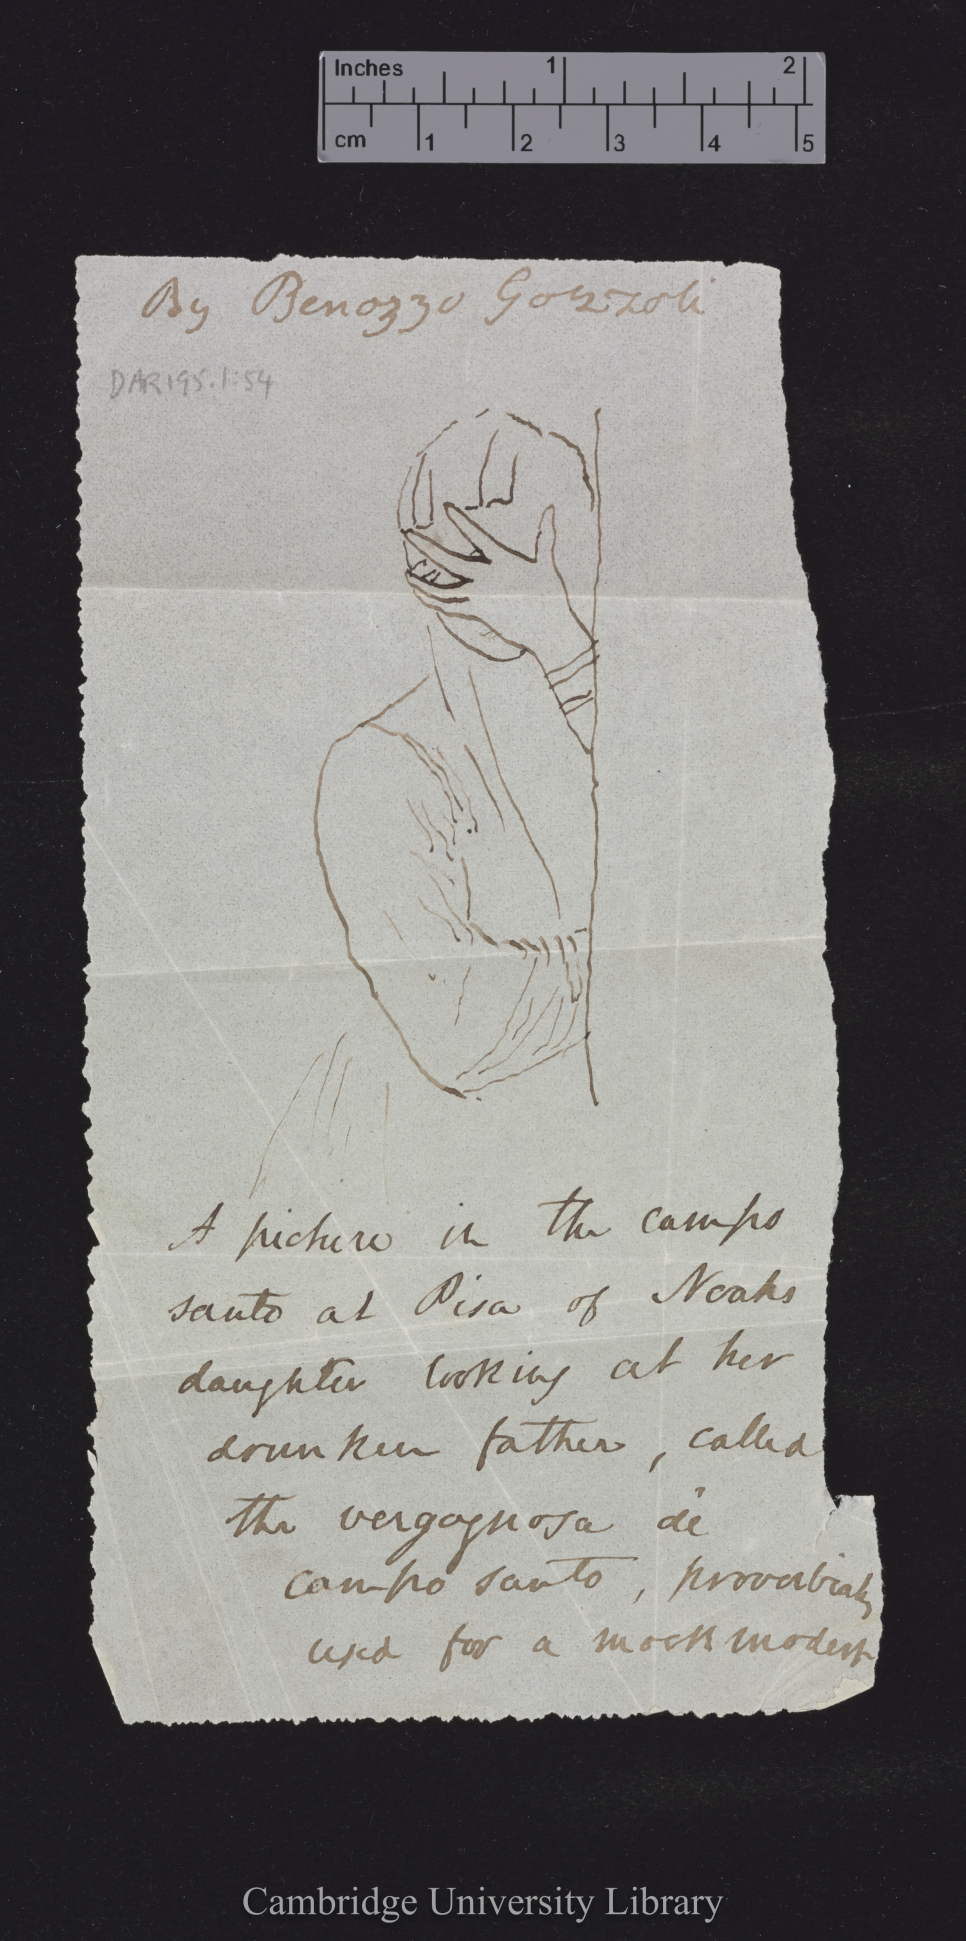 Inches 1 2
cm 1 2 3 4 5
By Benozzo Gozzoli
DAR195.1:54
A picture in the campo
santo at Pisa of Noahs
daughter looking at her
drunken father, called
the vergognosa di
campo santo, proverbially
used for a mock modest
Cambridge University Library